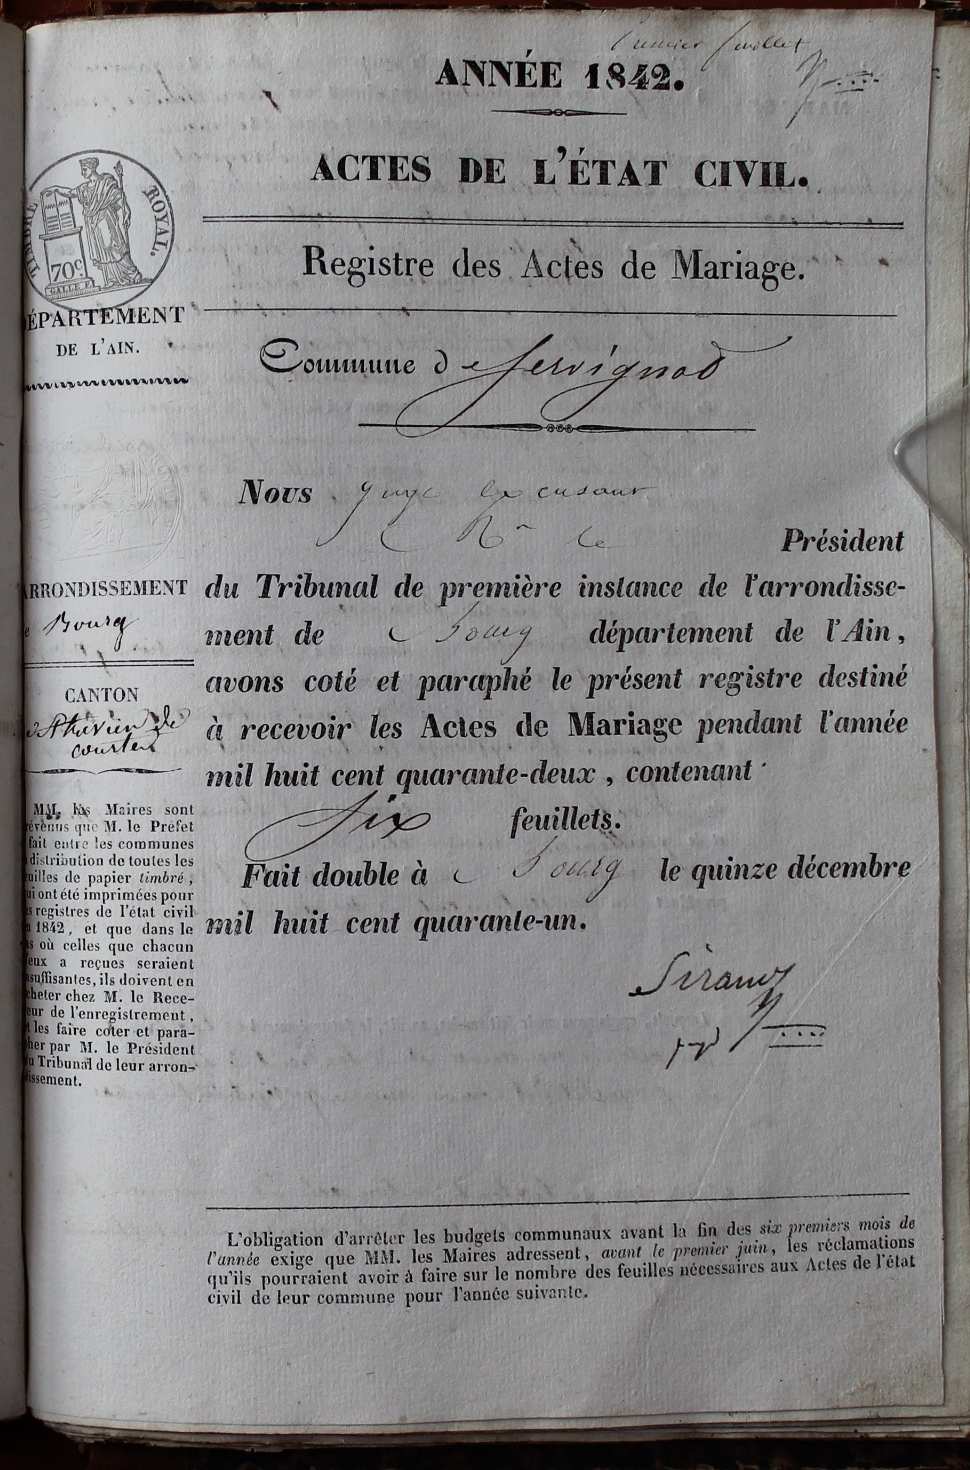 Premier feuillet
ANNÉE 1842.
ACTES DE L'ÉTAT CIVIL.
TIMBRE ROYAL.
70c
Registre des Actes de Mariage.
ÉPARTEMENT
DE L'AIN.
Commune de Servignat
Nous juge
Président
du Tribunal de première instance de l'arrondisse-
ment de Bourg département de l'Ain,
avons coté et paraphé le présent registre destiné
à recevoir les Actes de Mariage pendant l'année
mil huit cent quarante-deux, contenant
Six feuillets.
Fait double à Bourg le quinze décembre
mil huit cent quarante-un.
Sirand
juge
RRONDISSEMENT
e Bourg
CANTON
de St trivier de
courtes
MM. les Maires sont
révenus que M. le Préfet
fait entre les communes
distribution de toutes les
uilles de papier timbré,
ui ont été imprimées pour
s registres de l'état civil
n 1842, et que dans le
as où celles que chacun
eux a reçues seraient
suffisantes, ils doivent en
cheter chez M. le Rece-
eur de l'enregistrement,
t les faire coter et para-
her par M. le Président
u Tribunal de leur arron-
issement.
L'obligation d'arrêter les budgets communaux avant la fin des six premiers mois de
l'année exige que MM. les Maires adressent, avant le premier juin, les réclamations
qu'ils pourraient avoir à faire sur le nombre des feuilles nécessaires aux Actes de l'état
civil de leur commune pour l'année suivante.